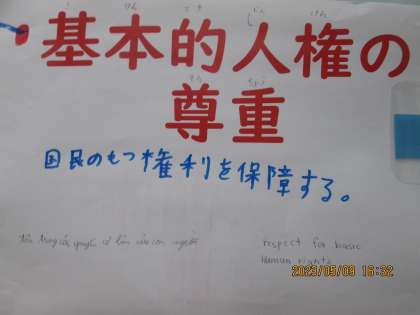 きほんてきじんけん
基本的人権の
そんちょう
尊重
国民のもつ権利を保障する。
tôn trọng các quyền cơ bản của con người
respect for basic
human rights
2023/05/09 16:32